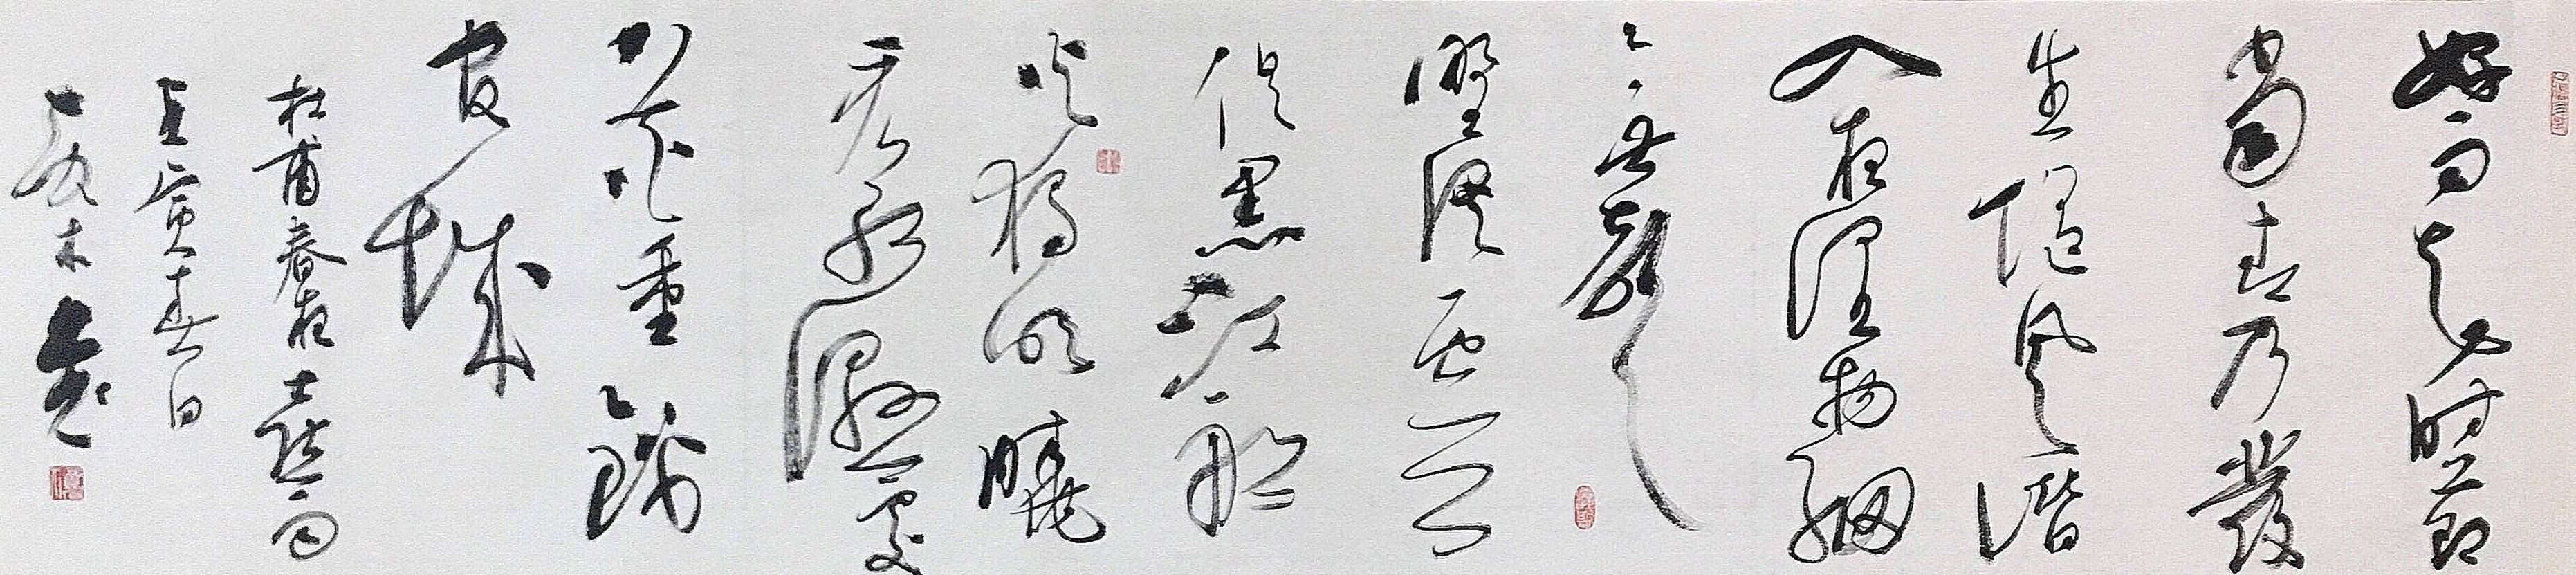 好雨知时節
當春乃發
生随風潛
入夜潤物細
無聲
野徑雲
俱黑江船
火獨明曉
看紅濕處
花重錦
官城
杜甫春夜喜雨
壬寅春日